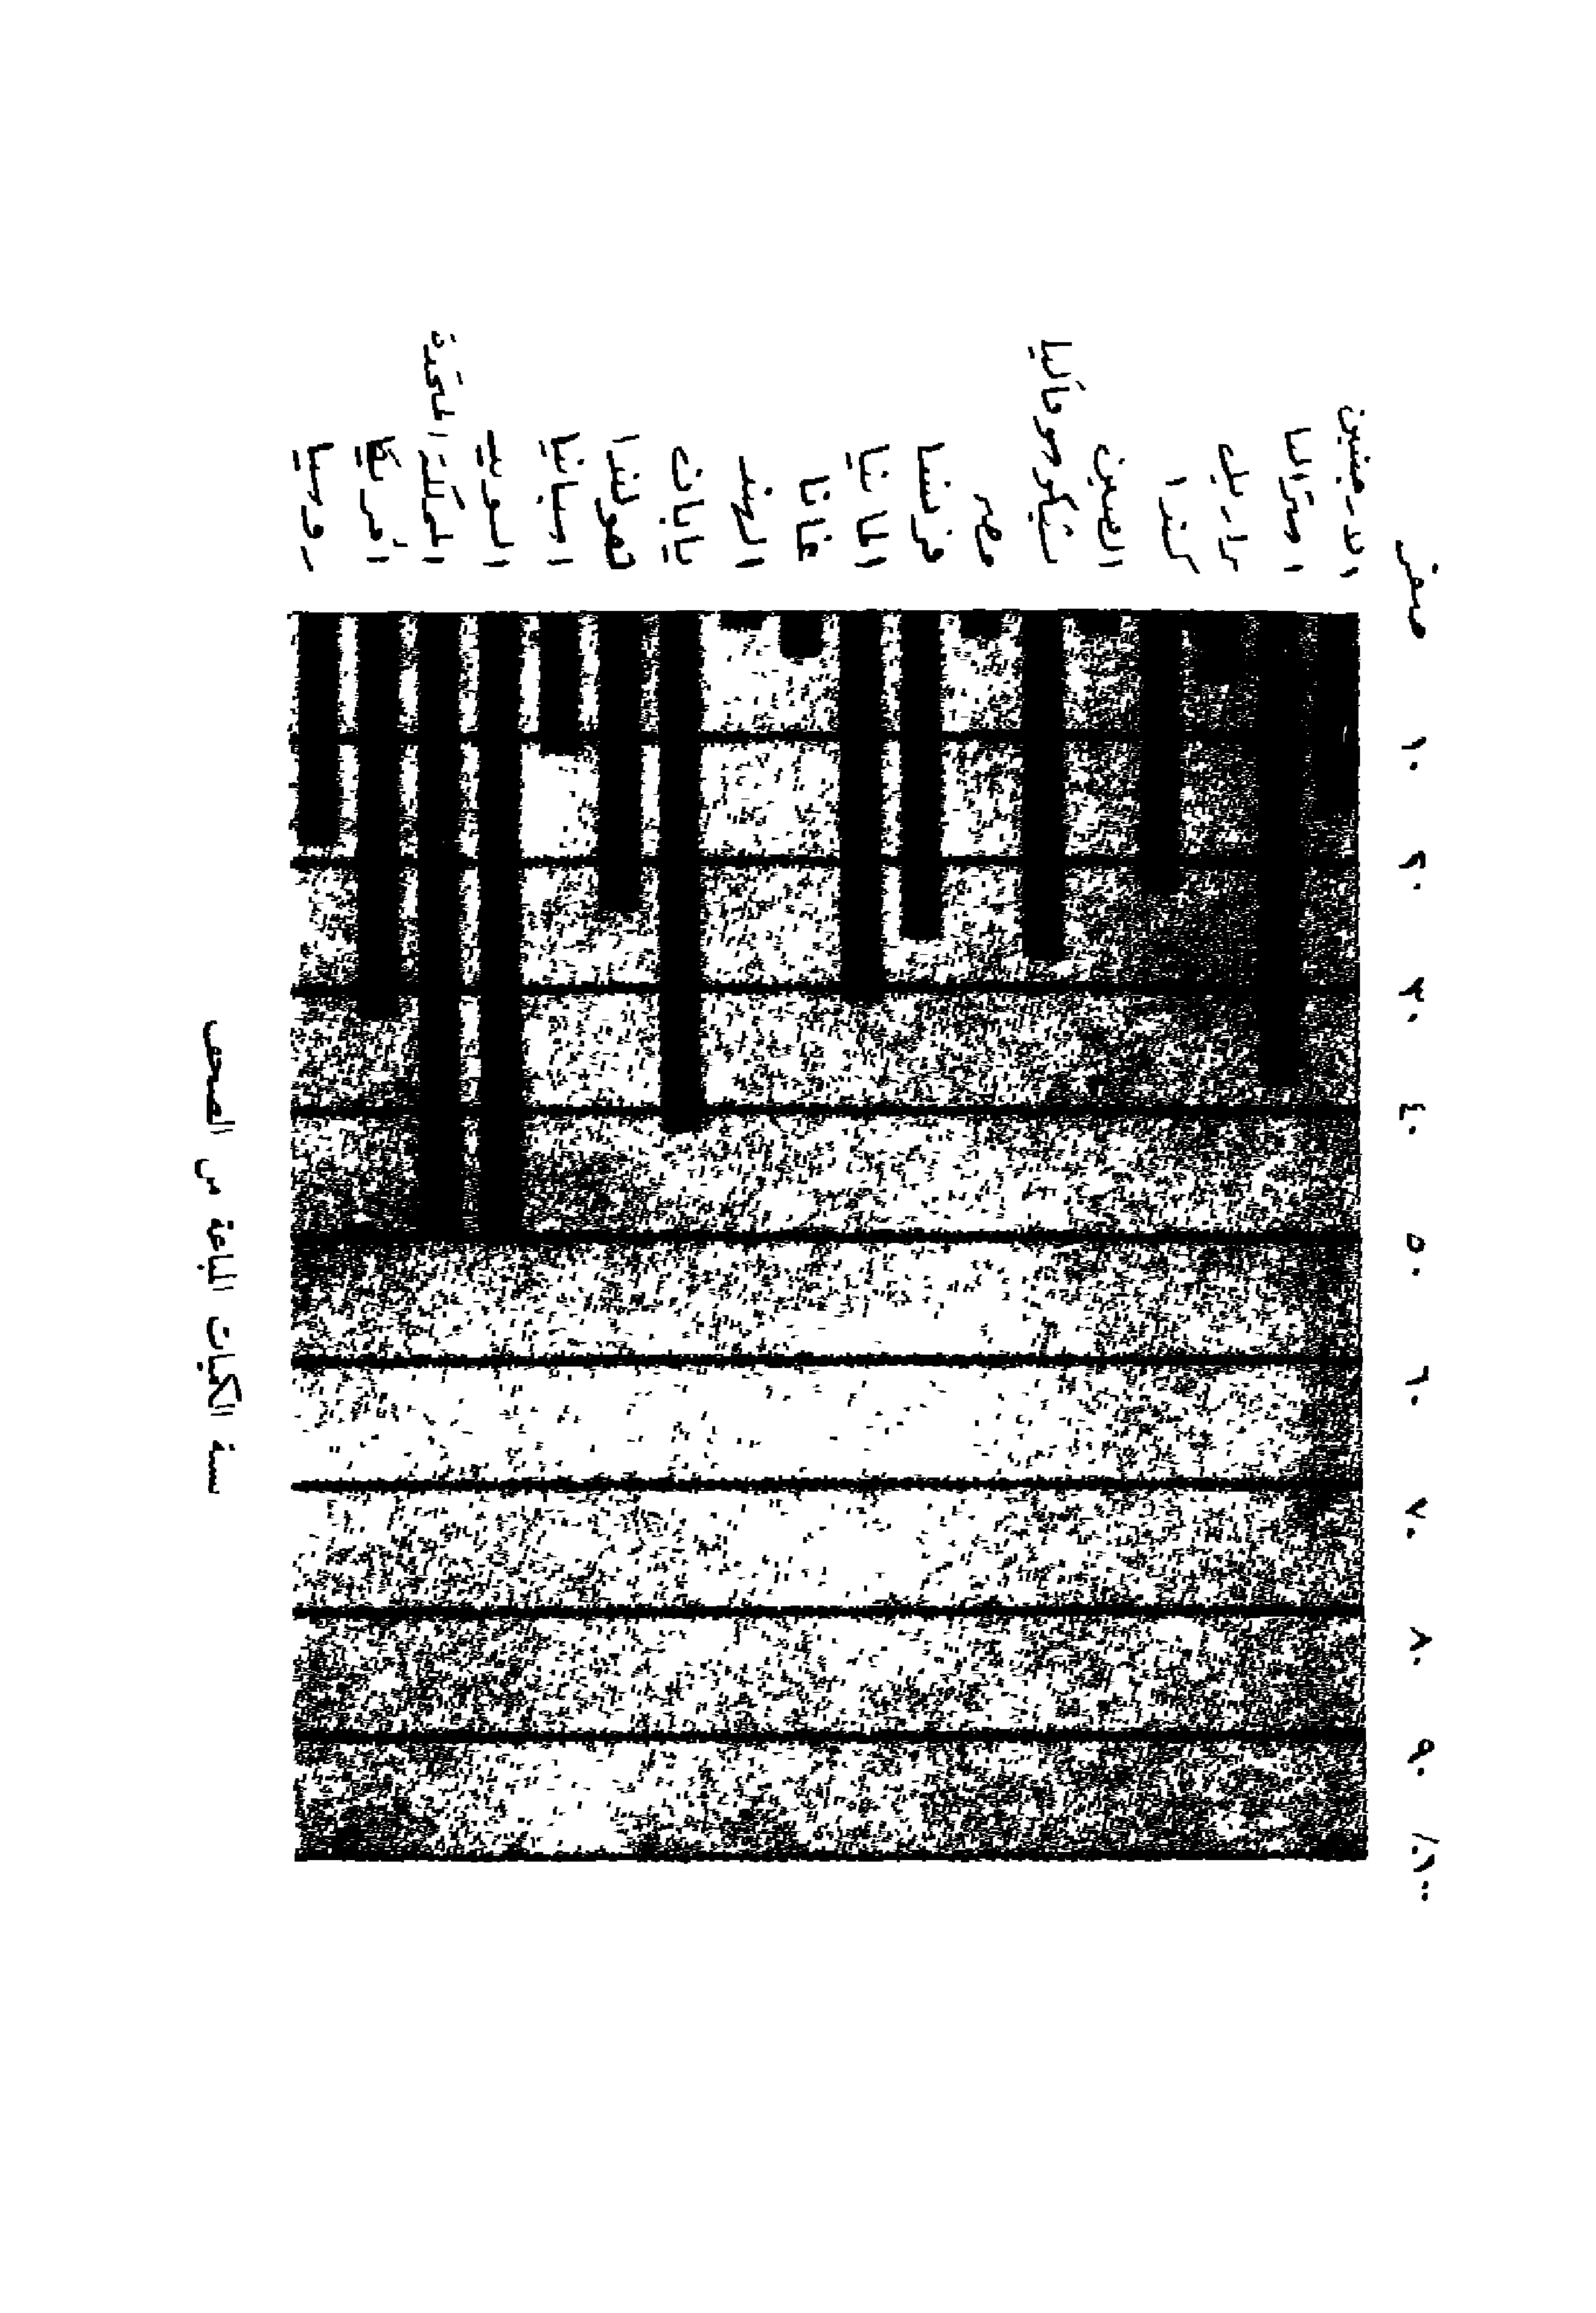 صفر
١٠
٢٠
٣٠
٤٠
٥٠
٦٠
٧٠
٨٠
٩٠
١٠٠٪
الارجنتين
استراليا
برازيل
كندا
الصين
تشيكوسلوفاكيا
مصر
فرنسا
المانيا
غانا
الهند
يابان
هولندا
اسبانيا
السويد
المملكة المتحدة
امريكا
روسيا
نسبة الكميات المباعة من الصحف